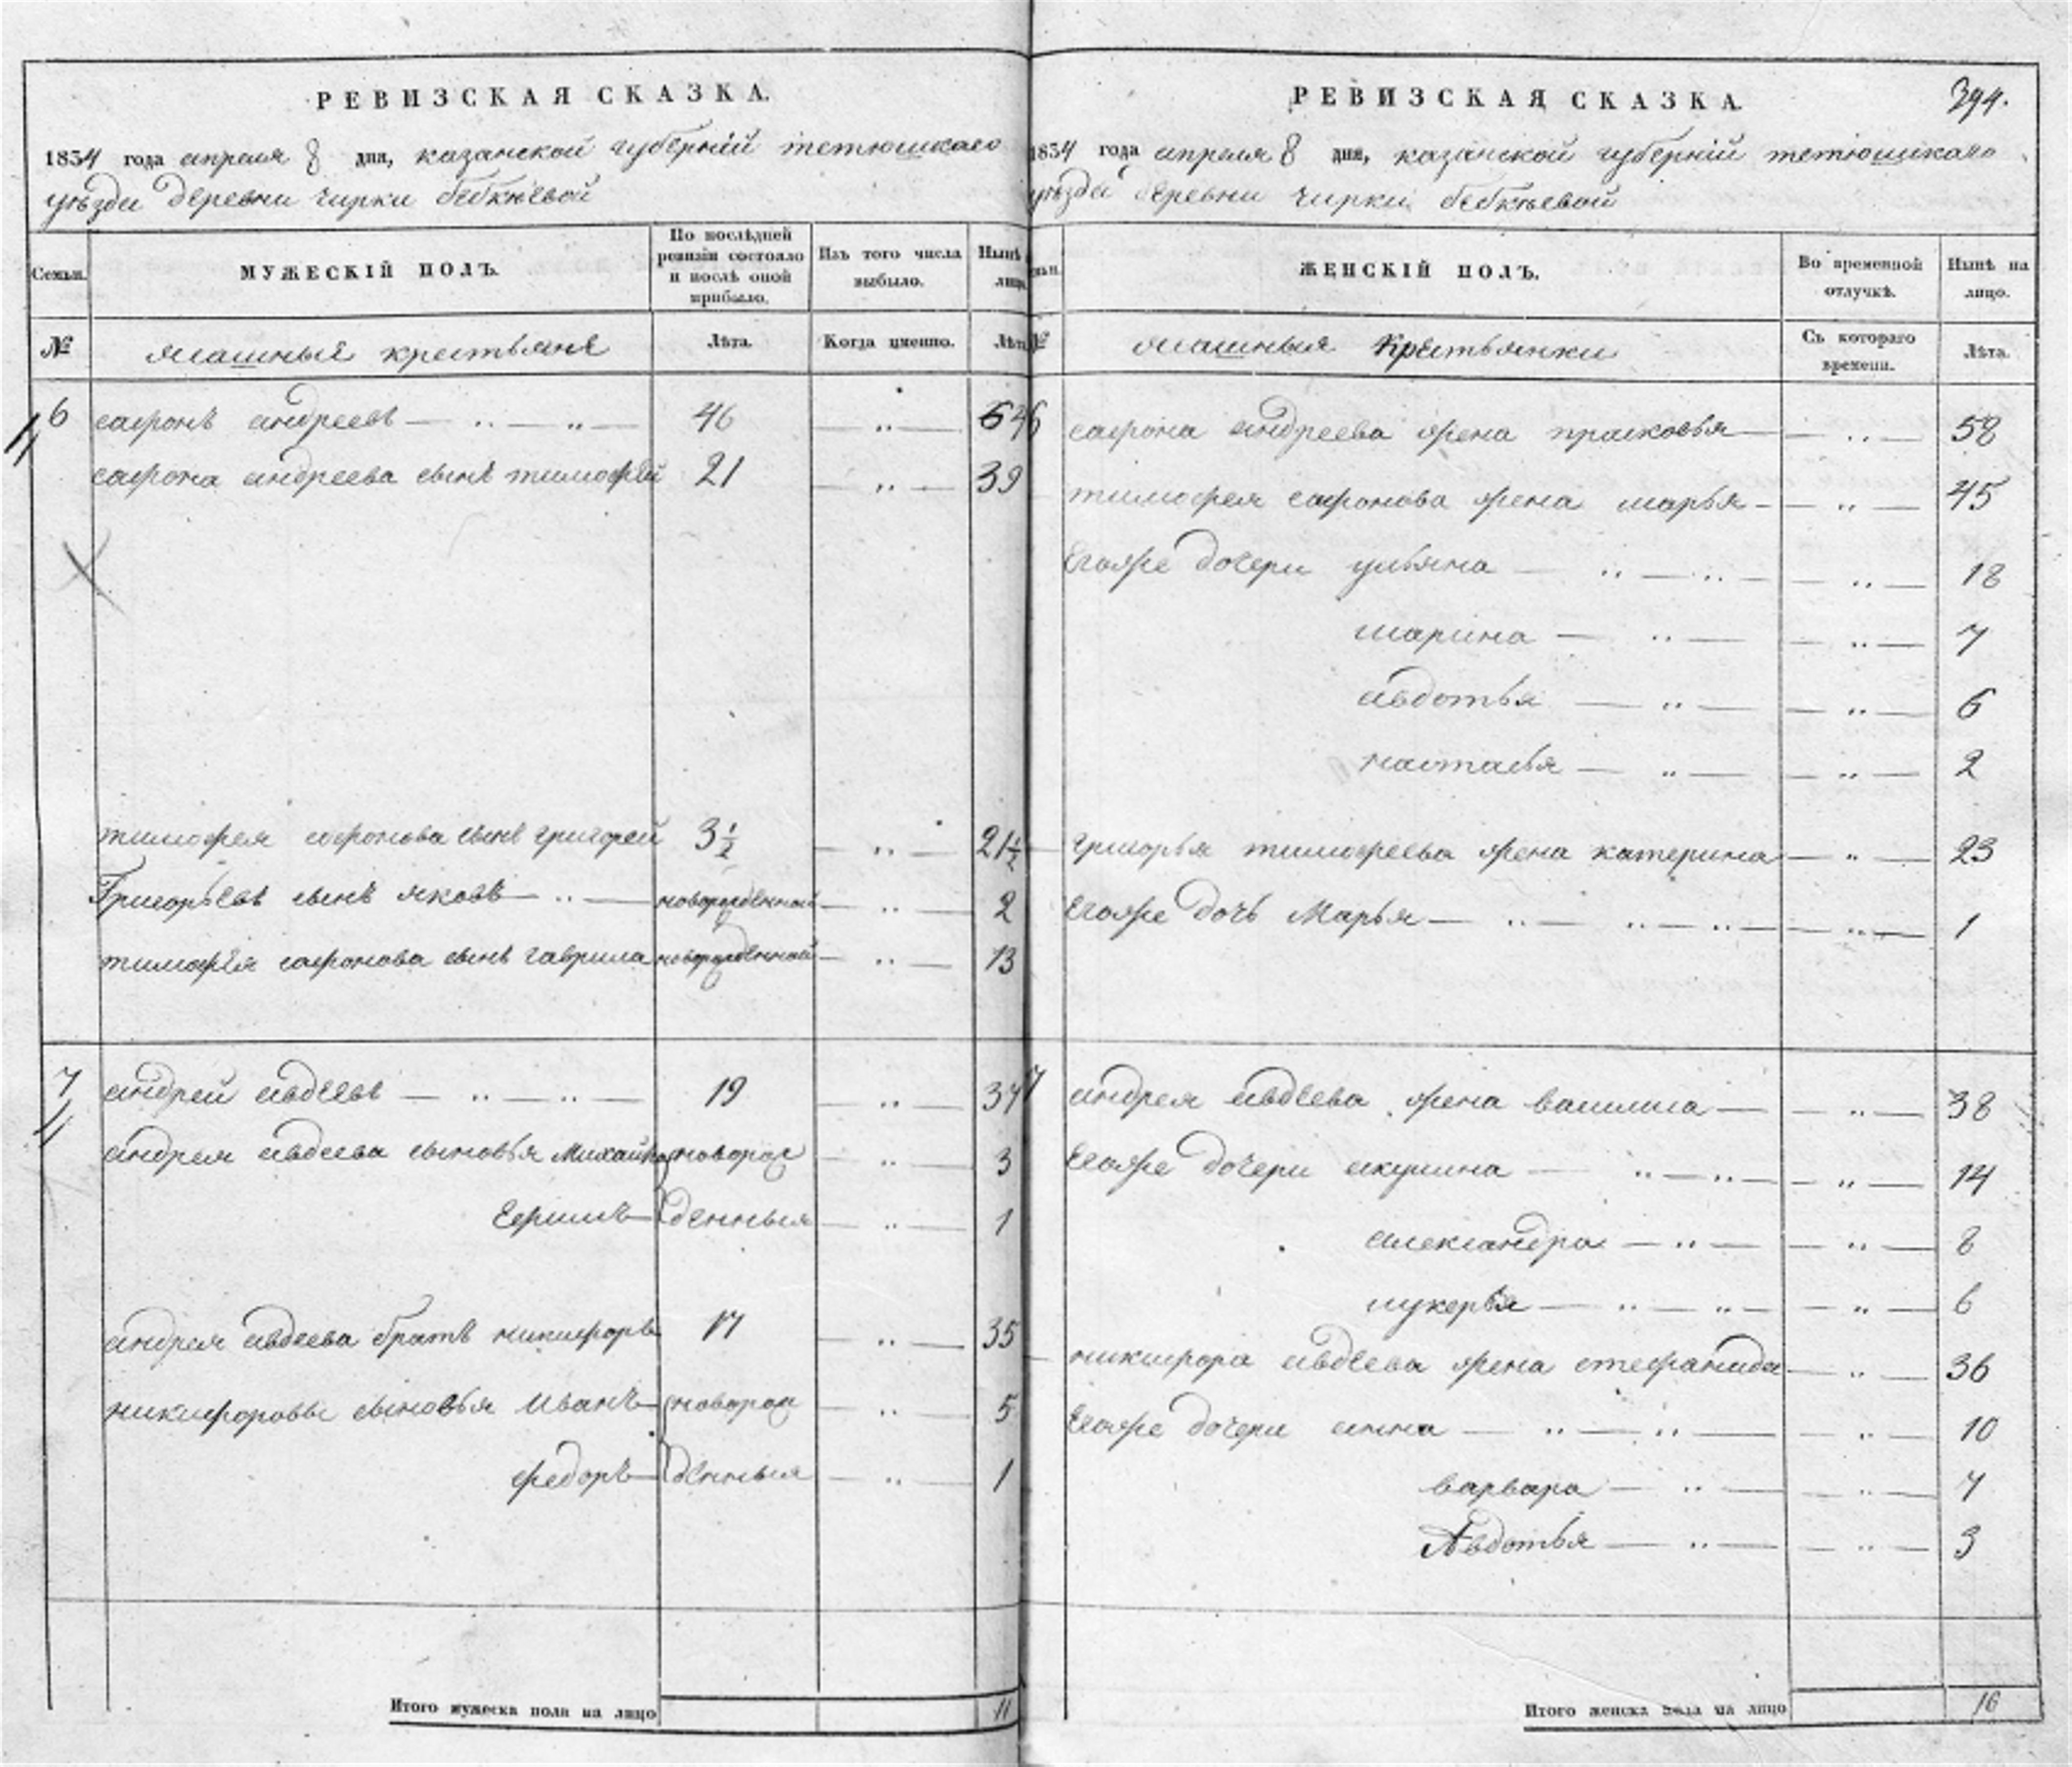 РЕВИЗСКАЯ СКАЗКА.
1834 года апреля 8 дня, казанской губерніи тетюшкаго
уѣзда деревни чирки бебкѣевой
Семьи.
МУЖЕСКІЙ ПОЛЪ.
По послѣдней ревизіи состояло и послѣ оной прибыло.
Изъ того числа выбыло.
Нынѣ лицо
№
ясашные крестьяне
Лѣта.
Когда именно.
Лѣта
6 сафонъ андреевъ — " — " — 46 — " — 64
сафона андреева сынъ тимофей 21 — " — 39
тимофея сафонова сынъ григорей 3 1/2 — " — 21 1/2
Григорьевъ сынъ яковъ — " — новорожденной — " — 2
тимофея сафонова сынъ гаврила новорожденной — " — 13
7 андрей авдеевъ — " — " — 19 — " — 37
андрея авдеева сыновья Михайла новорож — " — 3
Ефимъ — денныя — " — 1
андрея авдеева братъ никифоръ 17 — " — 35
никифоровы сыновья Иванъ — новорож — " — 5
федоръ — денныя — " — 1
Итого мужеска пола на лицо 11
РЕВИЗСКАЯ СКАЗКА. 394.
1834 года апреля 8 дня, казанской губерніи тетюшкаго
уѣзда деревни чирки бебкѣевой
ЖЕНСКІЙ ПОЛЪ.
Во временной отлучкѣ.
Нынѣ на лицо.
№
ясашныя Крестьянки
Съ котораго времени.
Лѣта.
6 сафона андреева жена прасковья — — " — 58
тимофея сафонова жена марья — — " — 45
Егояже дочери ульяна — " — " — — " — 18
марина — " — — " — 7
авдотья — " — — " — 6
настасья — " — — " — 2
григорья тимофеева жена катерина — " — 23
Егояже дочь Марья — " — " — " — — " — 1
7 андрея авдеева жена василиса — — " — 38
Егояже дочери акулина — " — " — — " — 14
александра — " — — " — 8
лукерья — " — " — — " — 6
никифора авдеева жена стефанида — " — 36
Егояже дочери анна — " — " — — " — 10
варвара — " — — " — 7
Авдотья — " — — " — 3
Итого женска пола на лицо 16